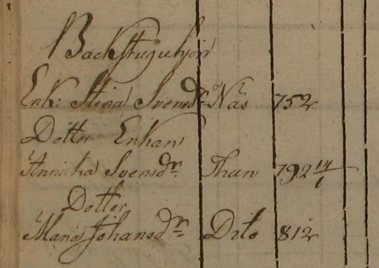 Backstuguhjon
Enk: Stina Svensdr Näs 752
Dotter Enkan
Annicka Svensdr Thun 792 14/1
Dotter
Maria Johansdr Dito 812